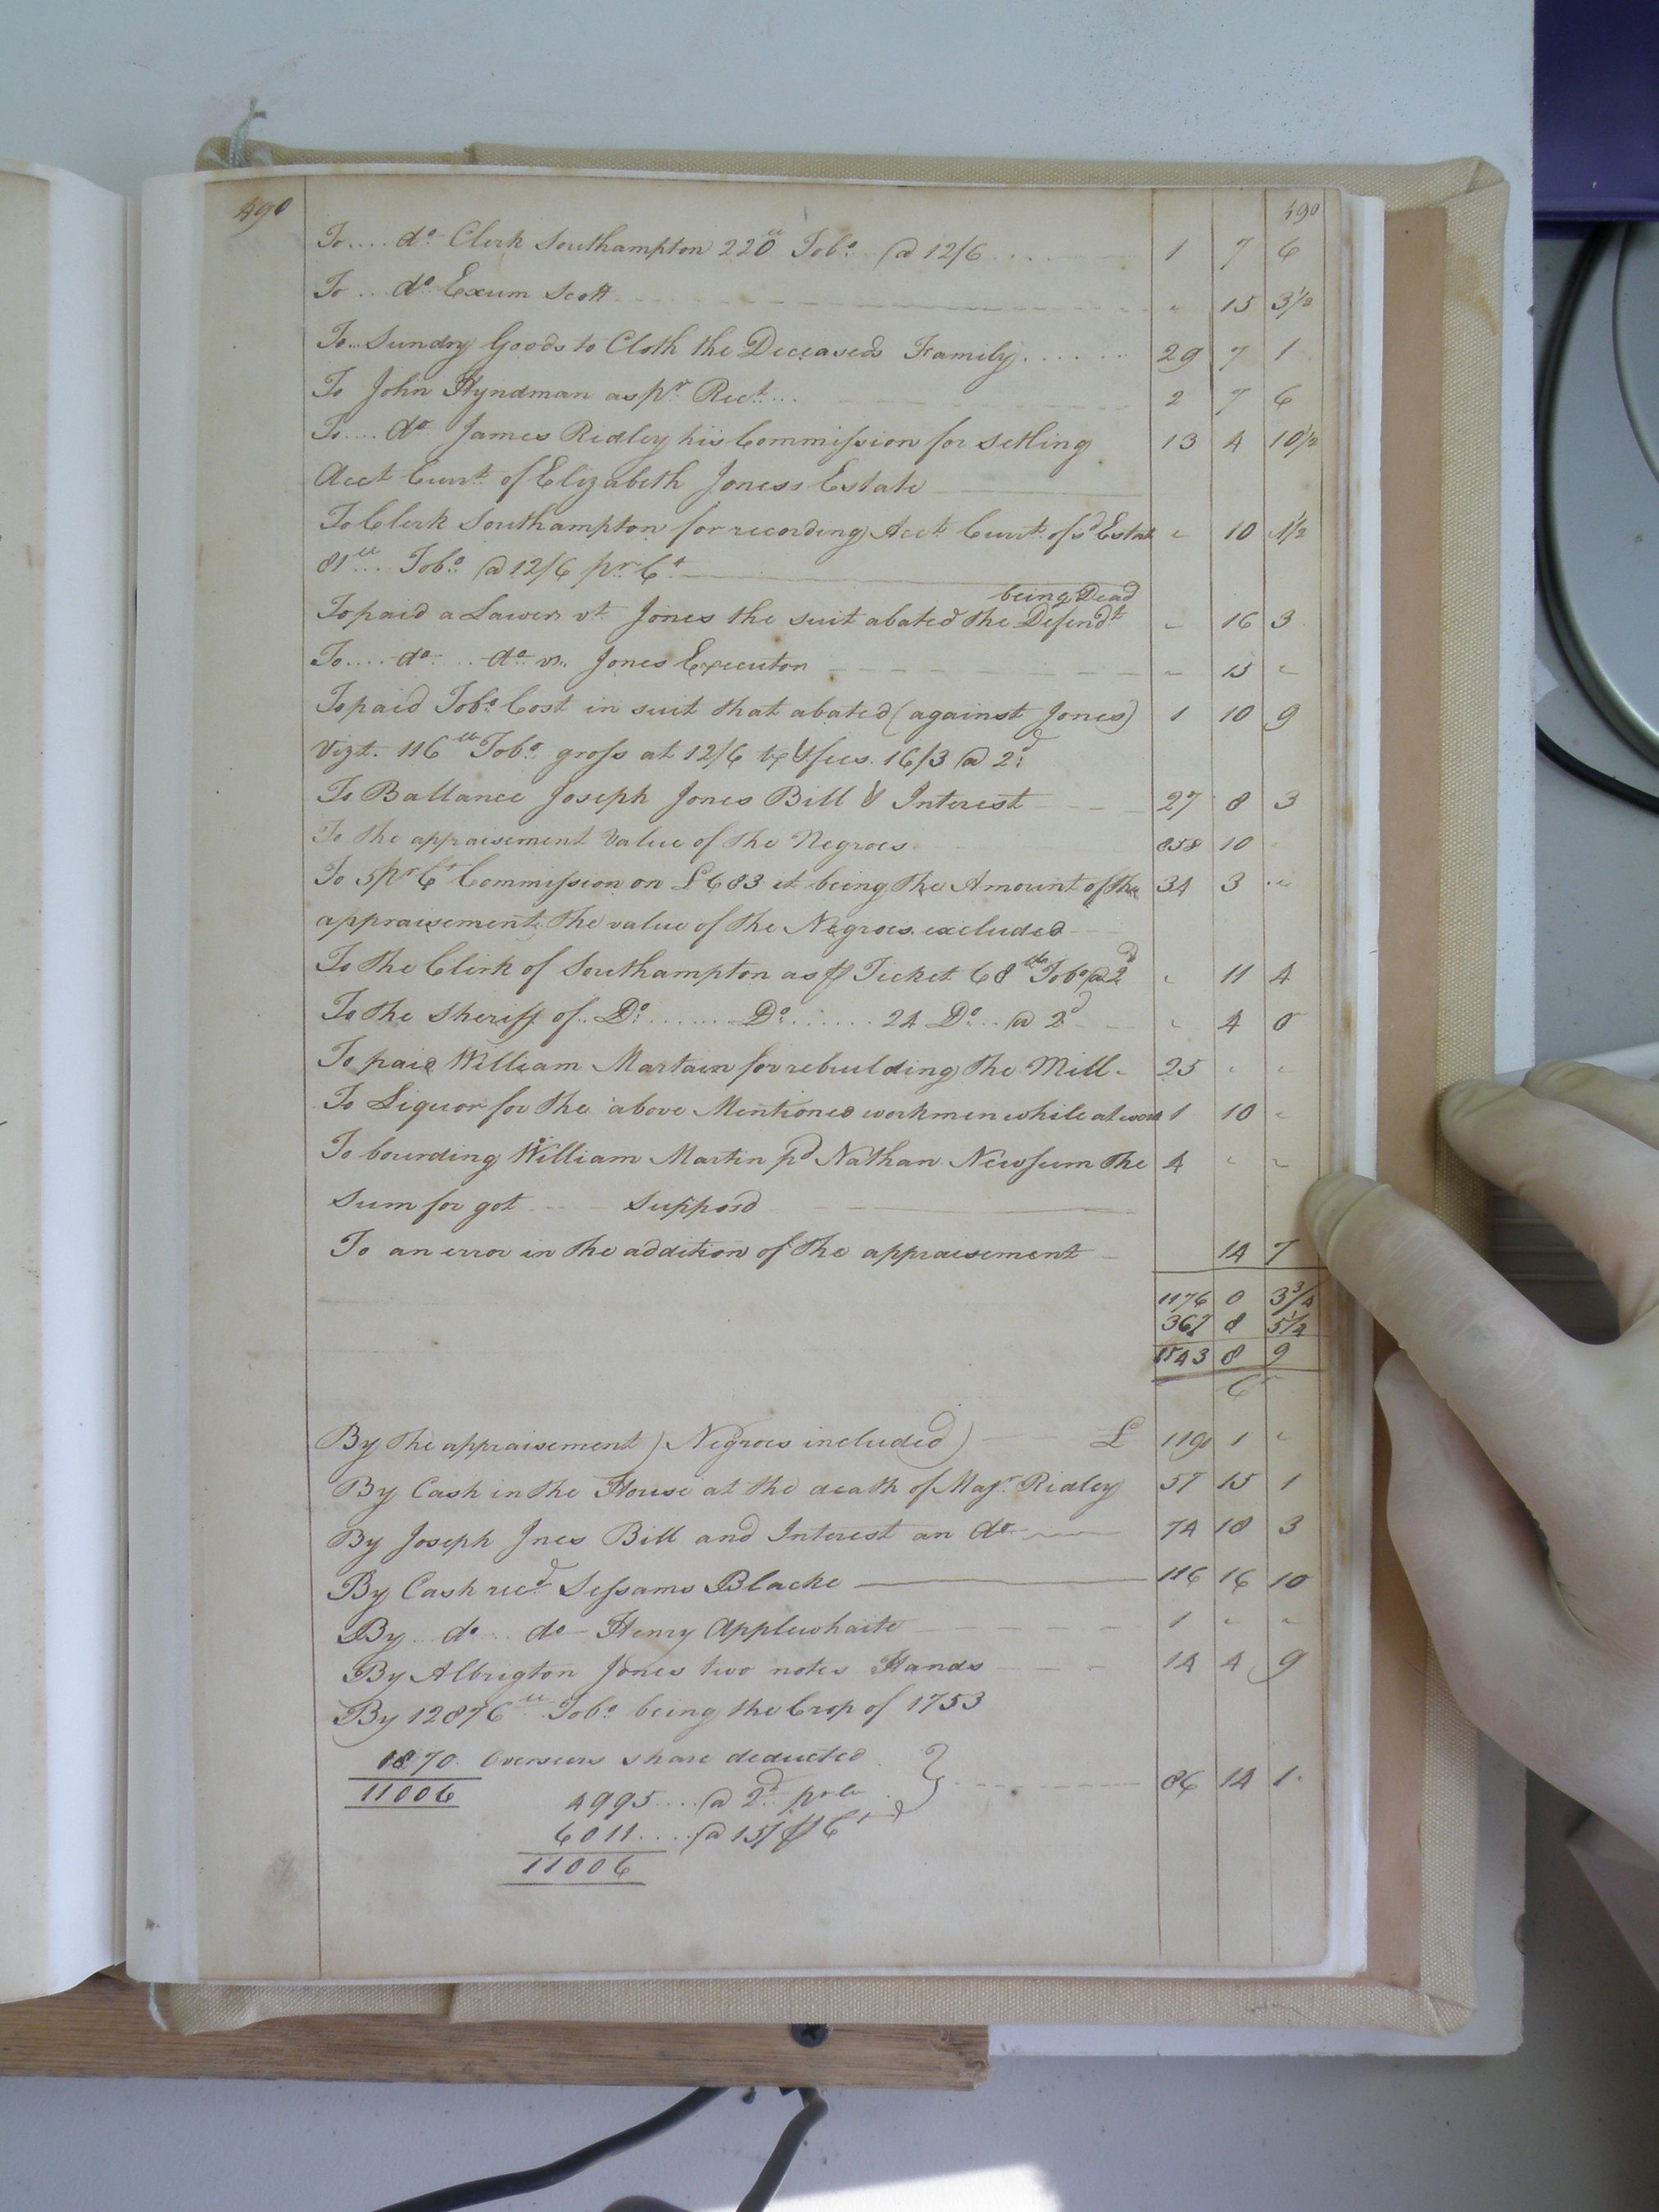 490 490
To.... do. Clerk Southampton 220ll Tobo. @ 12/6 .... 1 7 6
To .. do. Exum Scott " 15 3½
To.. Sundry Goods to Cloth the Deceaseds Family ...... 29 7 1
To John Hyndman as pr. Rect... 2 7 6
To.... do. James Ridley his Commission for setling 13 4 10½
Acct Currt. of Elizabeth Joness Estate
To Clerk Southampton for recording Acct. Currt. of sd Estat " 10 1½
81ll... Tobo. @ 12/6 pr. Ct
being Dead
To paid a Lawer vt. Jones the suit abated the Defendt " 16 3
To.... do. .. do. vs.. Jones Executor " 15 "
To paid Tobo. Cost in suit that abated (against Jones) 1 10 9
Vizt. 116ll Tobo. gross at 12/6 fees. 16/3 @ 2d
To Ballance Joseph Jones Bill & Interest 27 8 3
To the appraisement Value of the Negroes 858 10 "
To 5 pr Ct Commission on £683 it being the Amount of the 34 3 "
appraisement the value of the Negroes excluded
To the Clerk of Southampton as ⅌ Ticket 68 Tobo @ 2d " 11 4
To the Sheriff of .. Do. ...... Do. ...... 24 Do. .. @ 2d " 4 0
To paid William Martain for rebuilding the Mill 25 " "
To Liquor for the above Mentioned workmen while at work 1 10 "
To bourding William Martin pd Nathan Newsum the 4 " "
Sum for got .... Supposd
To an error in the addition of the appraisement 14 7
1176 0 3¾
367 8 5¼
1543 8 9
By the appraisement) Negroes included) £ 1191 1 "
By Cash in the House at the death of Majr. Ridley 57 15 1
By Joseph Jnes Bill and Interest an do 74 18 3
By Cash recd. Sessams Blacke 116 16 10
By .. do .. do Henry Applewhaite 1 " "
By Albrigton Jones two notes Hands 14 4 9
By 12876ll Tobo. being the Crop of 1753
1870. Overseers share deducted
11006 86 14 1
4995 .... @ 2d pr ll
6011 .... @ 15/ ⅌ Ct
11006